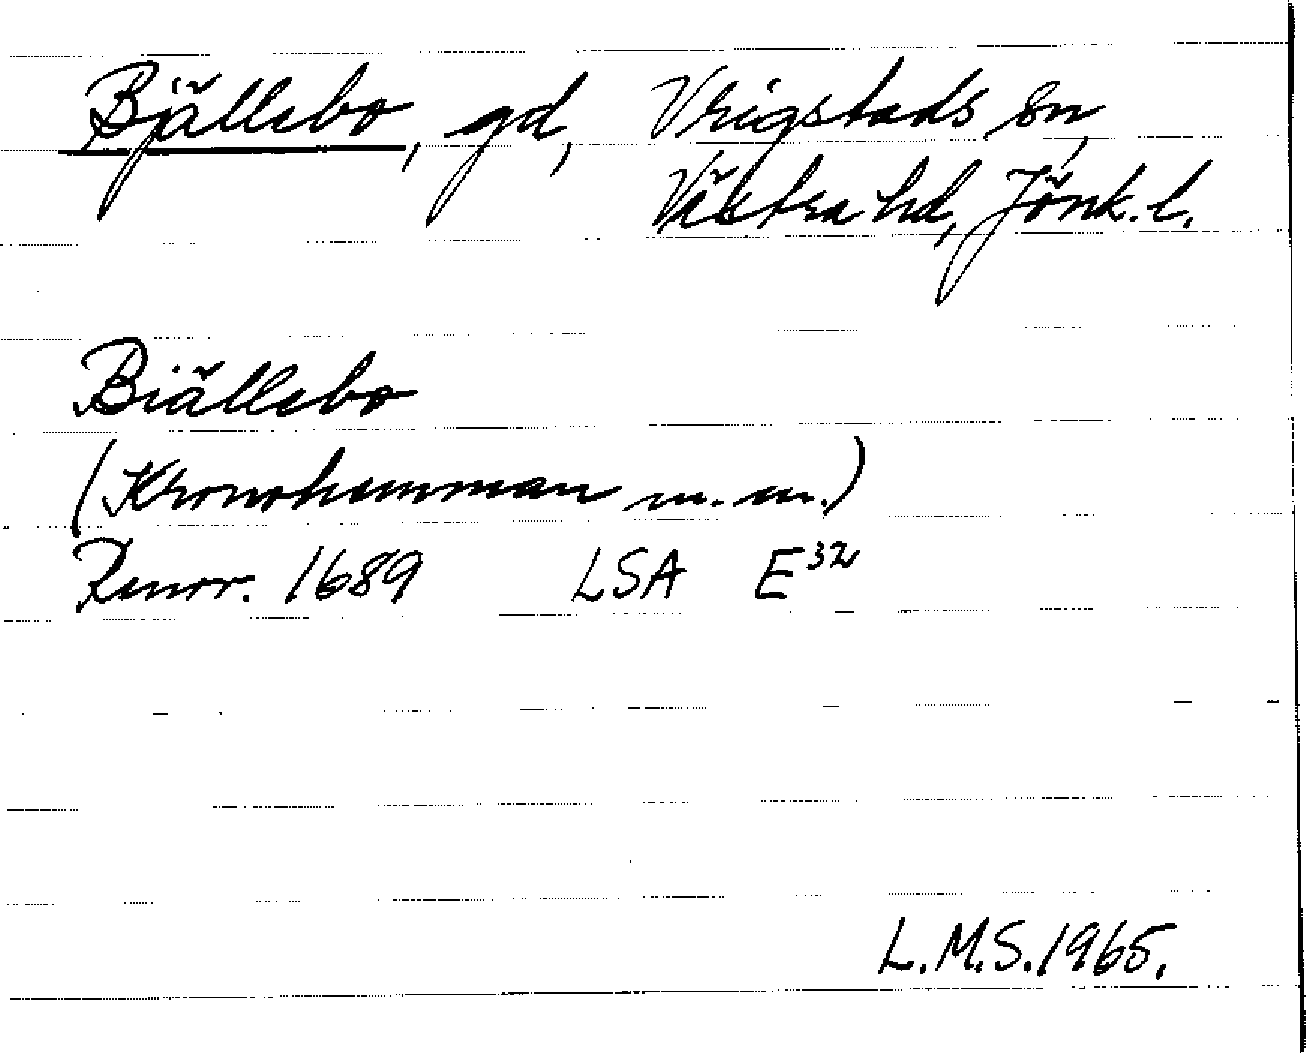 Bjällebo, gd, Vrigstads sn,
Västra hd, Jönk. l.
Biällebo
(Kronohemman m. m.)
Renov. 1689 LSA E³²
L.M.S. 1965.